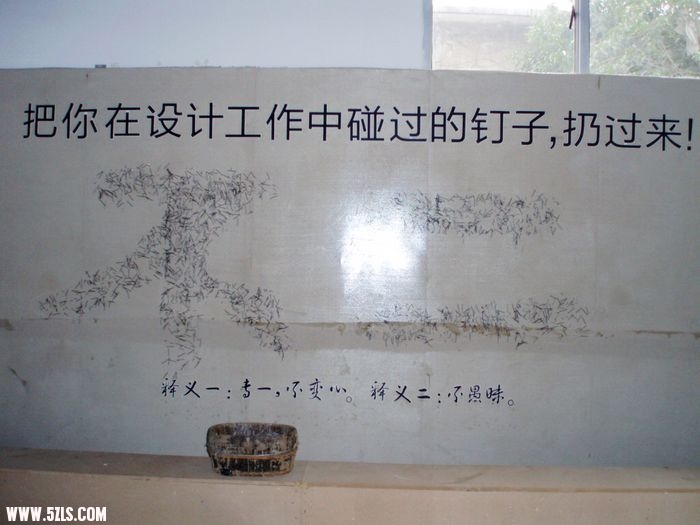 把你在设计工作中碰过的钉子,扔过来!
不二
释义一:专一,不变心。 释义二:不愚昧。
WWW.5ZLS.COM